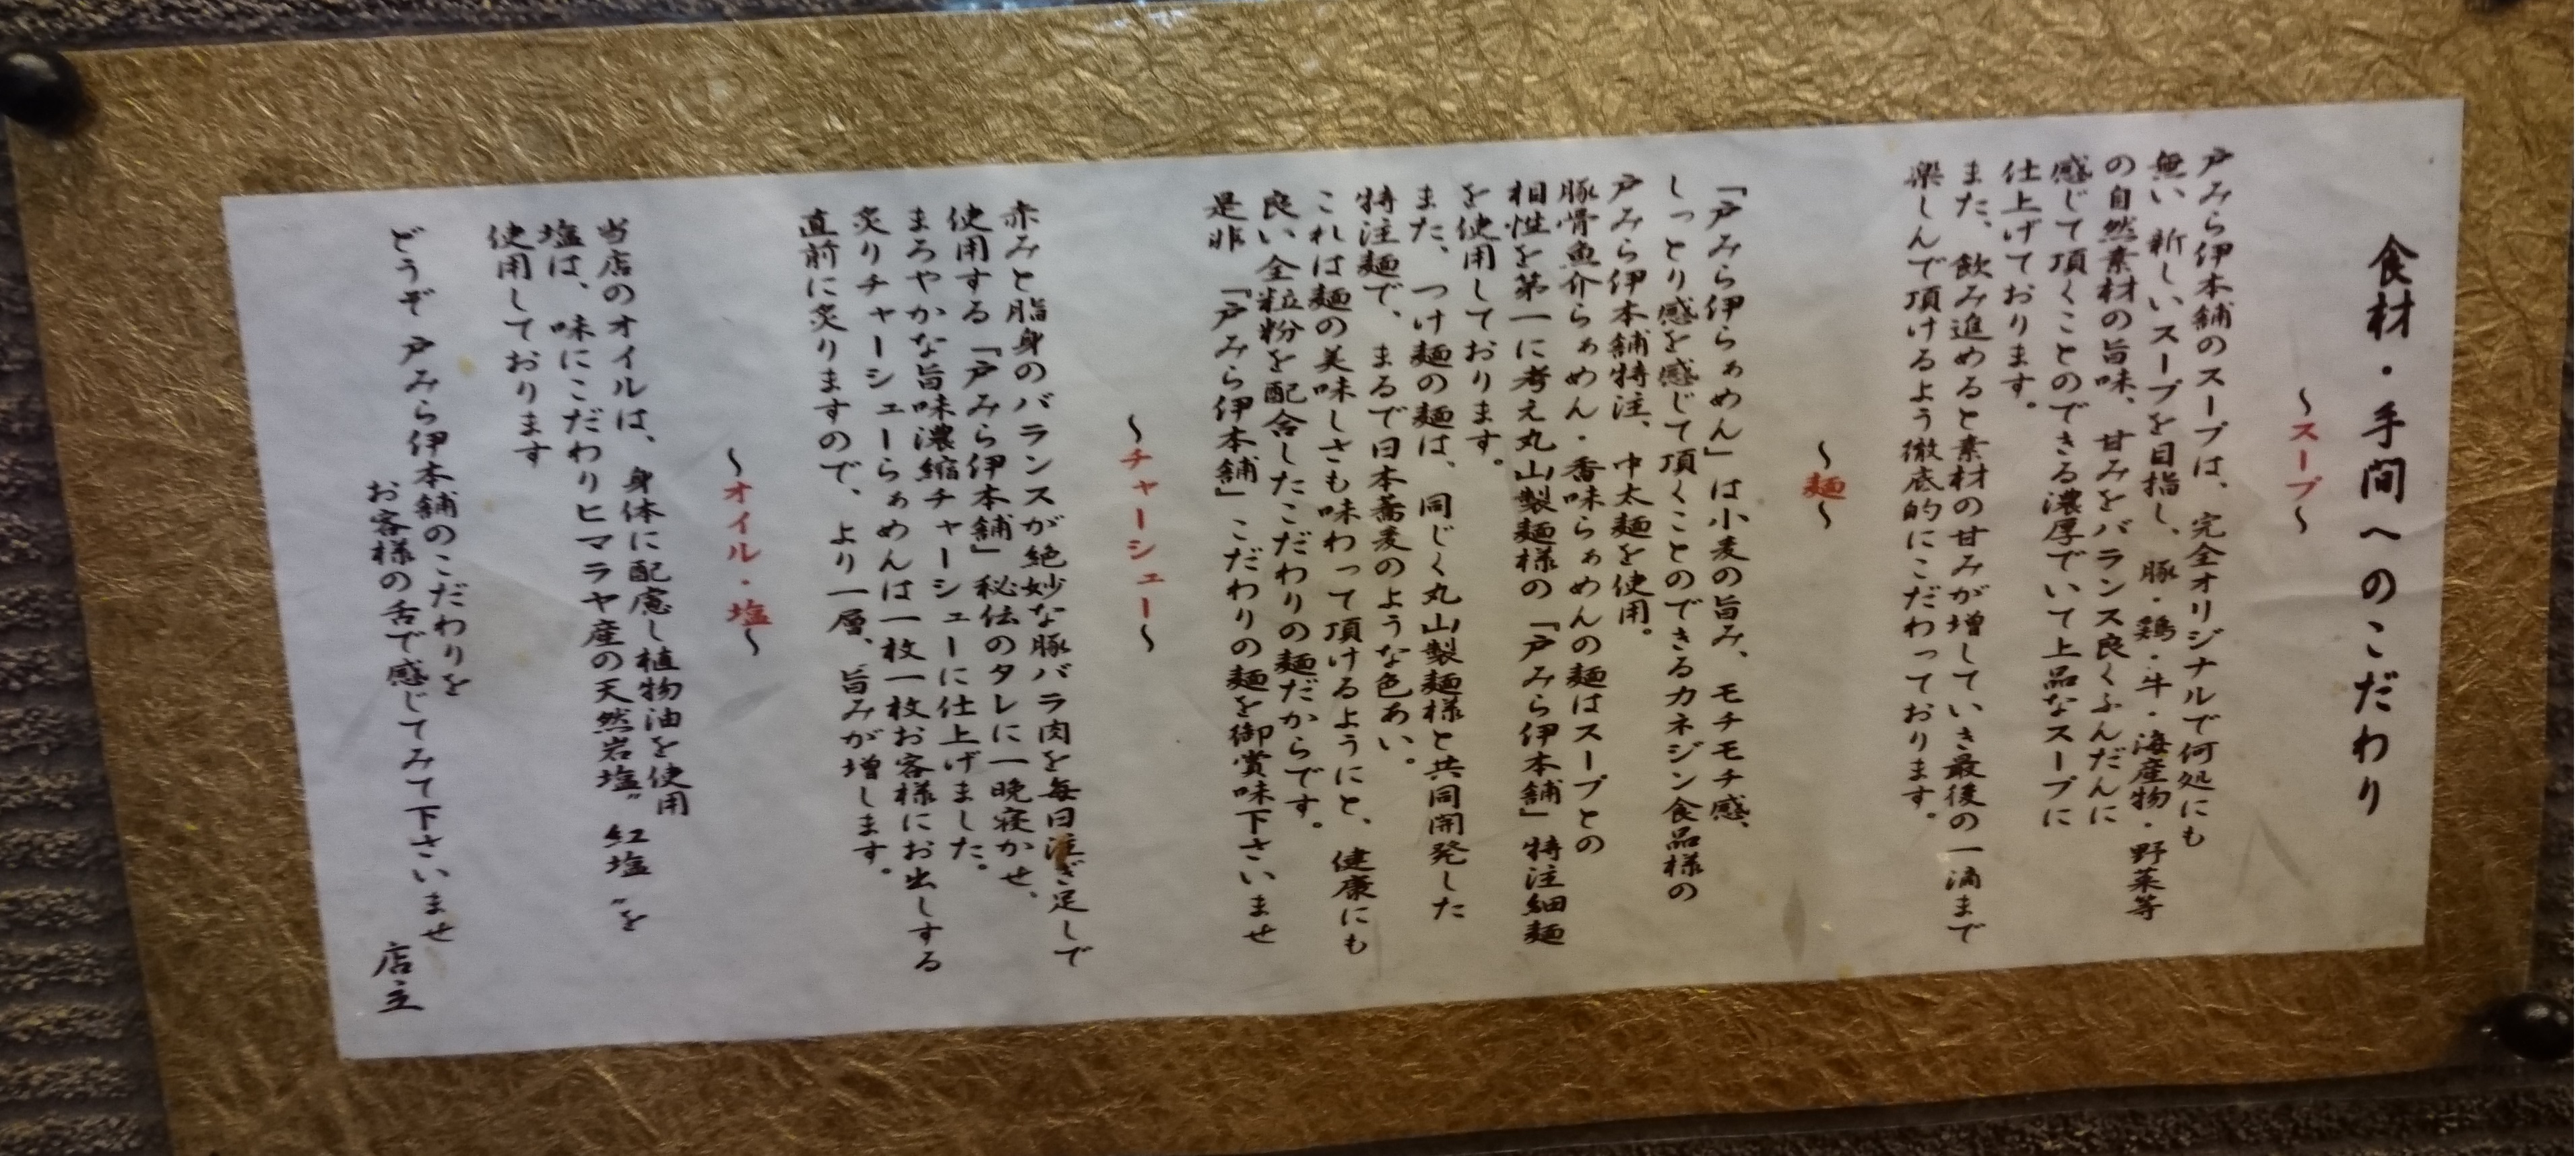 食材・手間へのこだわり
～スープ～
戸みら伊本舗のスープは、完全オリジナルで何処にも
無い新しいスープを目指し、豚・鶏・牛・海産物・野菜等
の自然素材の旨味、甘みをバランス良くふんだんに
感じて頂くことのできる濃厚でいて上品なスープに
仕上げております。
また、飲み進めると素材の甘みが増していき最後の一滴まで
楽しんで頂けるよう徹底的にこだわっております。
～麺～
「戸みら伊らぁめん」は小麦の旨み、モチモチ感、
しっとり感を感じて頂くことのできるカネジン食品様の
戸みら伊本舗特注、中太麺を使用。
豚骨魚介らぁめん・香味らぁめんの麺はスープとの
相性を第一に考え丸山製麺様の「戸みら伊本舗」特注細麺
を使用しております。
また、つけ麺の麺は、同じく丸山製麺様と共同開発した
特注麺で、まるで日本蕎麦のような色あい。
これは麺の美味しさも味わって頂けるようにと、健康にも
良い全粒粉を配合したこだわりの麺だからです。
是非「戸みら伊本舗」こだわりの麺を御賞味下さいませ
～チャーシュー～
赤みと脂身のバランスが絶妙な豚バラ肉を毎日注ぎ足しで
使用する「戸みら伊本舗」秘伝のタレに一晩寝かせ、
まろやかな旨味濃縮チャーシューに仕上げました。
炙りチャーシューらぁめんは一枚一枚お客様にお出しする
直前に炙りますので、より一層、旨みが増します。
～オイル・塩～
当店のオイルは、身体に配慮し植物油を使用
塩は、味にこだわりヒマラヤ産の天然岩塩〝紅塩〟を
使用しております
どうぞ戸みら伊本舗のこだわりを
お客様の舌で感じてみて下さいませ
店主